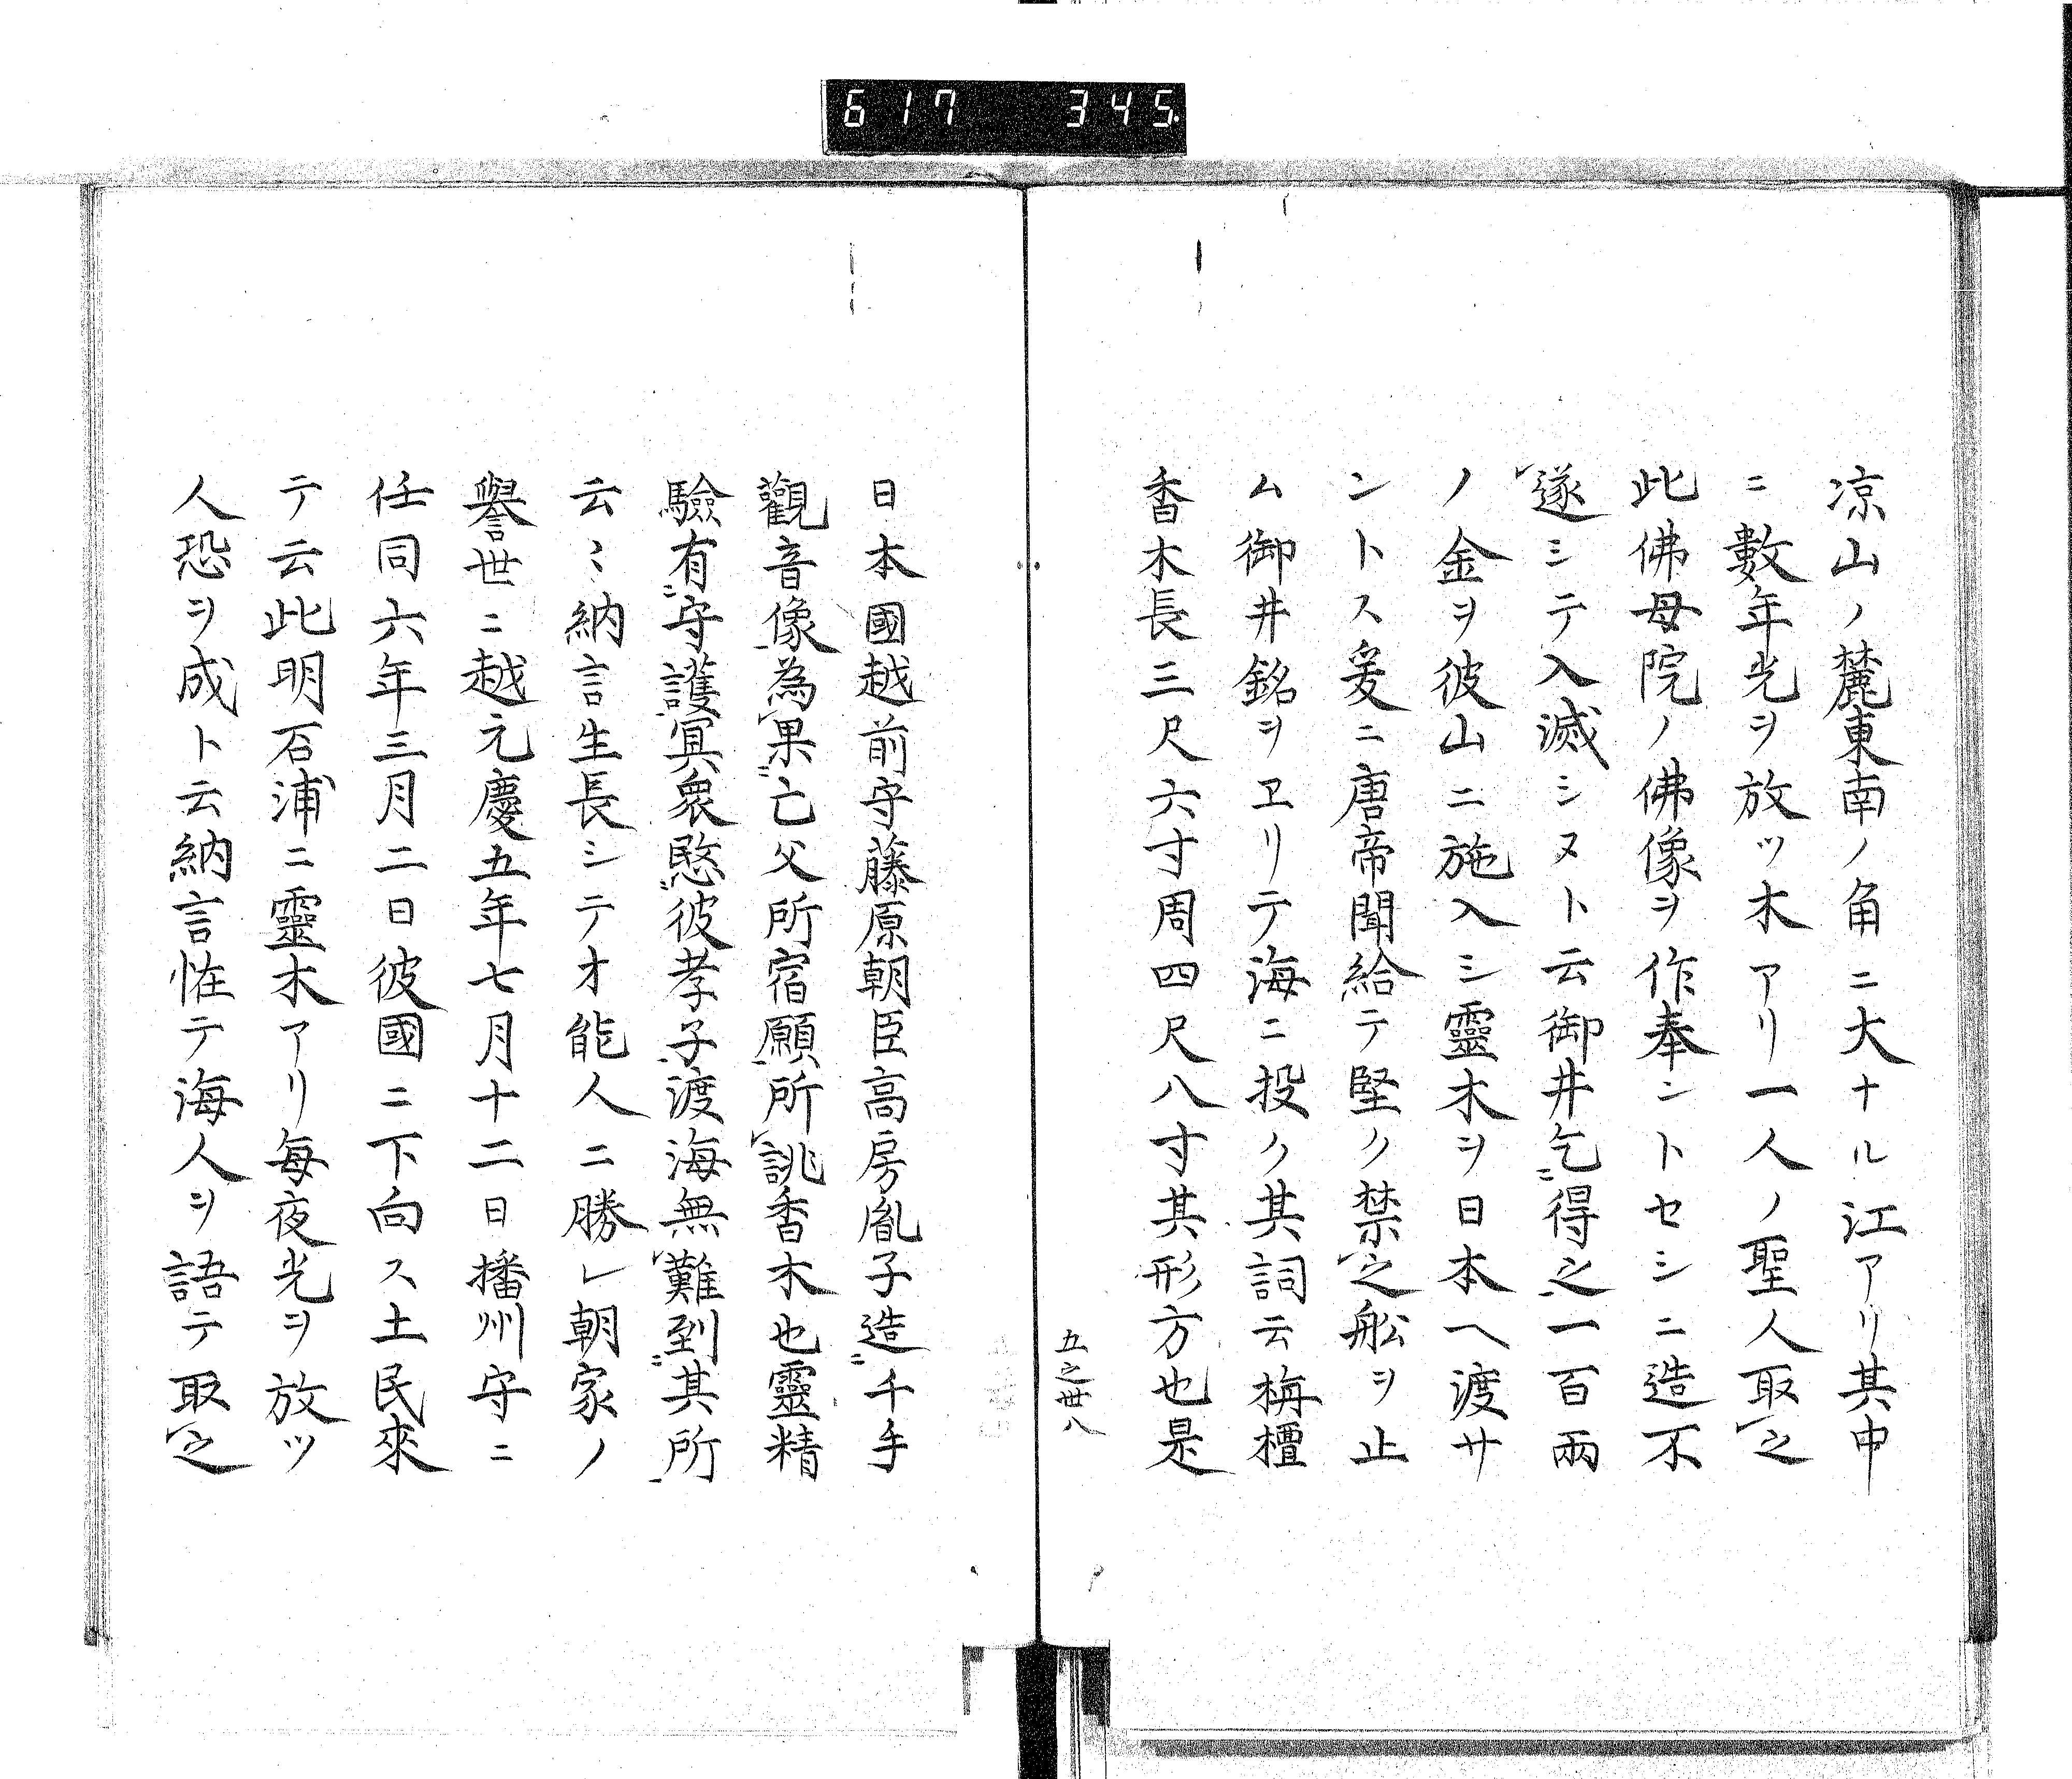 617 345
凉山ノ麓東南ノ角ニ大ナル江アリ其中
ニ數年光ヲ放ツ木アリ一人ノ聖人取之
此佛母院ノ佛像ヲ作奉ントセシニ造不
遂シテ入滅シヌト云御井乞得之一百兩
ノ金ヲ彼山ニ施入シ靈木ヲ日本ヘ渡サ
ントス爰ニ唐帝聞給テ堅ク禁之舩ヲ止
ム御井銘ヲヱリテ海ニ投ク其詞云栴檀
香木長三尺六寸周四尺八寸其形方也是
五之卅八
日本國越前守藤原朝臣高房胤子造千手
觀音像為果亡父所宿願所誂香木也靈精
驗有守護冥衆愍彼孝子渡海無難到其所
云〻納言生長シテオ能人ニ勝レ朝家ノ
譽世ニ越元慶五年七月十二日播州守ニ
任同六年三月二日彼國ニ下向ス土民來
テ云此明石浦ニ靈木アリ毎夜光ヲ放ツ
人恐ヲ成ト云納言恠テ海人ヲ語テ取之